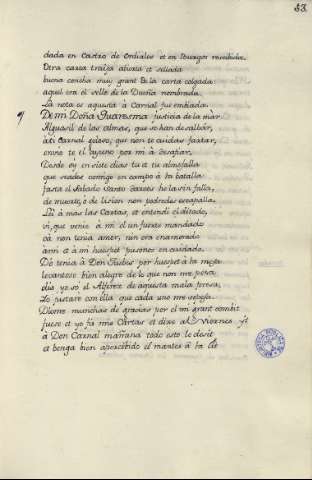 83.
dada en Castro de Ordiales et en Burgos rescibida.
Otra carta trahja abierta et sellada
buena concha muy grant de la carta colgada
aquel era el sello de la Dueña nombrada
La nota es aquesta à Carnal fue embiada.
De mi Doña Quaresma justicia de la mar
Alguasil de las almas, que se han de salbar,
à ti Carnal goloso, que non te cuidas fartar,
envio te el ayuno por mi à desafiar.
Desde oy en siete dias tu et tu almofalla
que seades comigo en campo à la batalla
fasta el Sabado Santo darvos he lasin falla,
de muerte, ò de lision non podredes escapalla.
Lèi à mas las Cartas, et entendi el ditado,
vi, que venie à mi el un fuerte mandado
cà non tenia amor, nin era enamorado
à mi et à mi huespet pusonos en cuidado.
Dò tenia à Don Jueves por huespet à la mesa
levantose bien alegre de lo que non me pesa
dis yo sò el Alferes de aquesta mala presa,
Yo justare con ella que cada uno me sopesa.
Diome munchas de gracias por el mi grant combit
fuese et yo fis mis Cartas et dixe al Viernes
à Don Carnal mañana todo esto le desit
et benga bien apercebido el martes à la lit